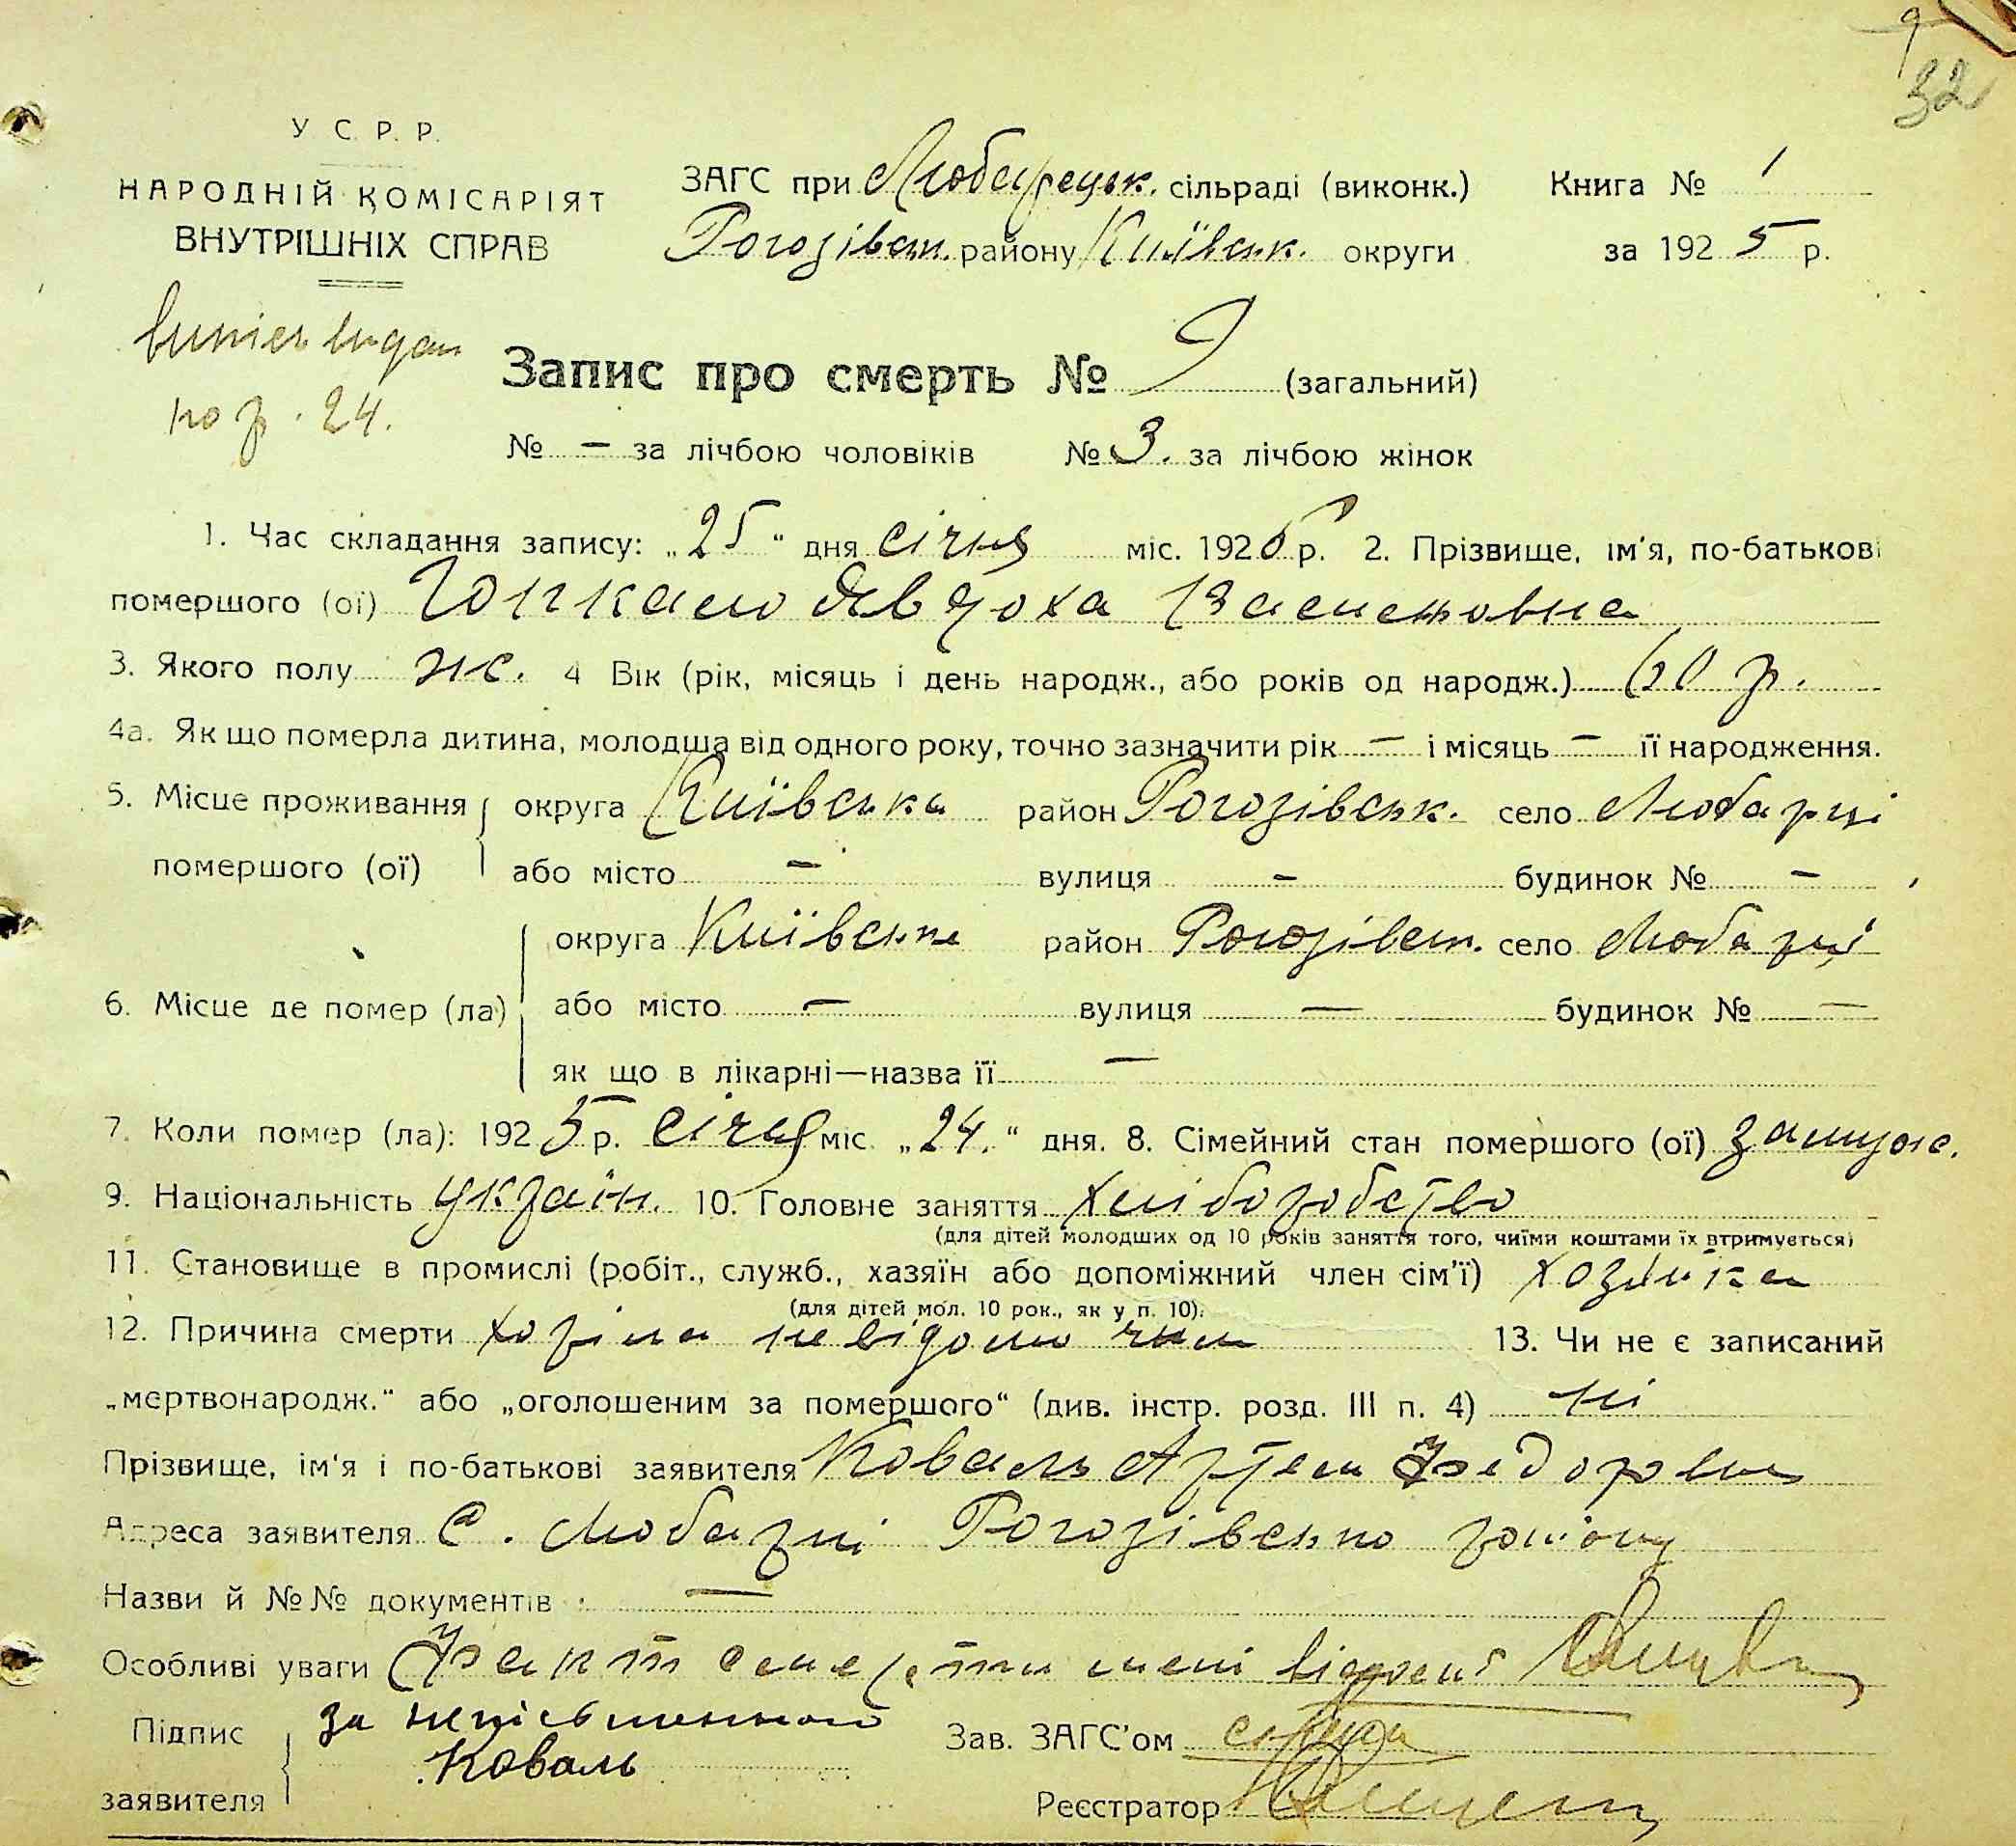 9
32
У С. Р. Р.
НАРОДНІЙ КОМІСАРІЯТ
ВНУТРІШНІХ СПРАВ
ЗАГС при Любарецьк. сільраді (виконк.)
Рогозівськ. району Київськ. округи
Книга № 1
за 1925 р.
24.
Запис про смерть № 9 (загальний)
№ — за лічбою чоловіків № 3. за лічбою жінок
1. Час складання запису: „25“ дня січня міс. 1925 р. 2. Прізвище, ім'я, по-батькові
помершого (ої) Явдоха
3. Якого полу ж. 4 Вік (рік, місяць і день народж., або років од народж.) 60 р.
4а. Як що померла дитина, молодша від одного року, точно зазначити рік — і місяць — її народження.
5. Місце проживання помершого (ої) округа Київська район Рогозівськ. село Любарці
або місто — вулиця — будинок № —
6. Місце де помер (ла) округа Київська район Рогозівськ. село Любарці
або місто — вулиця — будинок № —
як що в лікарні—назва її —
7. Коли помер (ла): 1925 р. січня міс. „24.“ дня. 8. Сімейний стан помершого (ої) замуж.
9. Національність україн. 10. Головне заняття хліборобство
(для дітей молодших од 10 років заняття того, чиїми коштами їх втримується)
11. Становище в промислі (робіт., служб., хазяїн або допоміжний член сім'ї) хозяйка
(для дітей мол. 10 рок., як у п. 10).
12. Причина смерти хоріла невідомо чим 13. Чи не є записаний
„мертвонародж.“ або „оголошеним за помершого“ (див. інстр. розд. III п. 4) ні
Прізвище, ім'я і по-батькові заявителя Коваль Артем Федорович
Адреса заявителя С. Любарці Рогозівсько району
Назви й №№ документів —
Особливі уваги Факт смерти мені відомий
Підпис заявителя за неписьменного
Коваль
Зав. ЗАГС'ом
Реєстратор